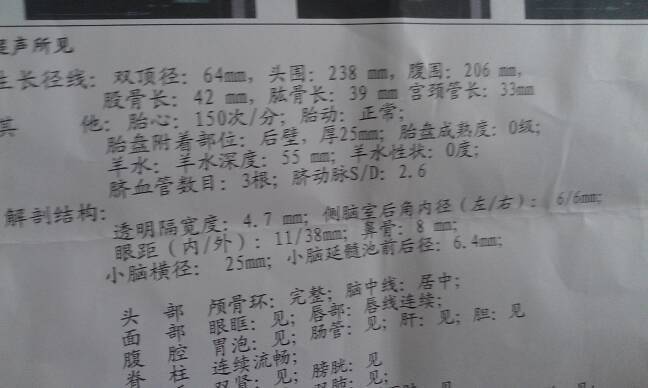 声所见
生长径线: 双顶径: 64mm, 头围: 238 mm, 腹围: 206 mm,
股骨长: 42 mm, 肱骨长: 39 mm 宫颈管长: 33mm
其 他: 胎心: 150次/分; 胎动: 正常;
胎盘附着部位: 后壁, 厚25mm; 胎盘成熟度: 0级;
羊水: 羊水深度: 55 mm; 羊水性状: 0度;
脐血管数目: 3根; 脐动脉S/D: 2.6
解剖结构:
透明隔宽度: 4.7 mm; 侧脑室后角内径(左/右): 6/6mm;
眼距(内/外): 11/38mm; 鼻骨: 8 mm;
小脑横径: 25mm; 小脑延髓池前后径: 6.4mm;
头 部 颅骨环: 完整; 脑中线: 居中;
面 部 眼眶: 见; 唇部: 唇线连续;
腹 腔 胃泡: 见; 肠管: 见; 肝: 见; 胆: 见
脊 柱 连续流畅;
双肾: 见; 膀胱: 见
双肺: 见;